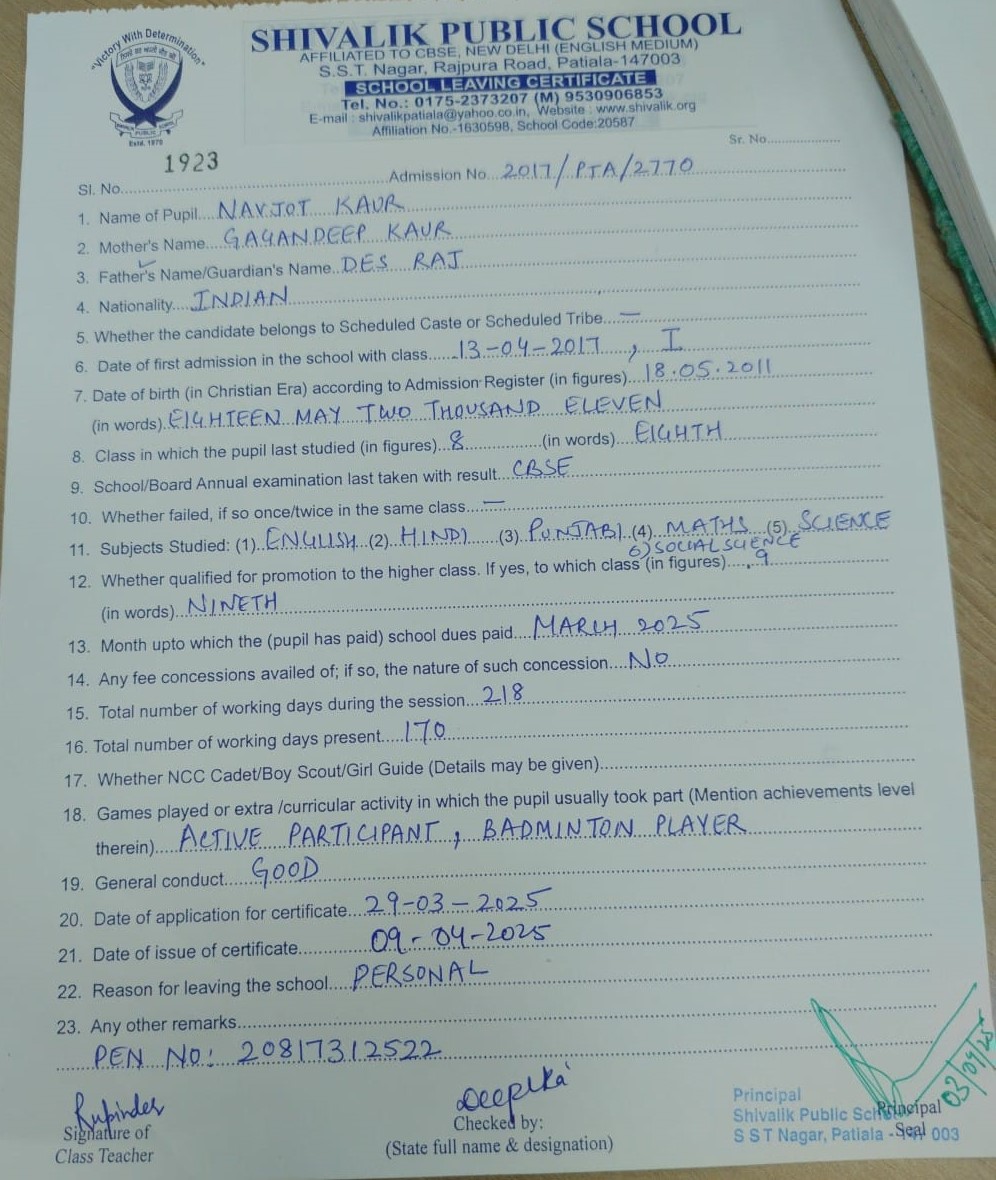 "Victory With Determination"
PUBLIC
Estd. 1970
SHIVALIK PUBLIC SCHOOL
AFFILIATED TO CBSE, NEW DELHI (ENGLISH MEDIUM)
S.S.T. Nagar, Rajpura Road, Patiala-147003
SCHOOL LEAVING CERTIFICATE
Tel. No.: 0175-2373207 (M) 9530906853
E-mail : shivalikpatiala@yahoo.co.in, Website : www.shivalik.org
Affiliation No.-1630598, School Code:20587
Sr. No.
Sl. No. 1923 Admission No. 2017/PTA/2770
1. Name of Pupil NAVJOT KAUR
2. Mother's Name GAGANDEEP KAUR
3. Father's Name/Guardian's Name DES RAJ
4. Nationality INDIAN
5. Whether the candidate belongs to Scheduled Caste or Scheduled Tribe —
6. Date of first admission in the school with class 13-04-2017, I
7. Date of birth (in Christian Era) according to Admission Register (in figures) 18.05.2011
(in words) EIGHTEEN MAY TWO THOUSAND ELEVEN
8. Class in which the pupil last studied (in figures) 8 (in words) EIGHTH
9. School/Board Annual examination last taken with result CBSE
10. Whether failed, if so once/twice in the same class —
11. Subjects Studied: (1) ENGLISH (2) HINDI (3) PUNJABI (4) MATHS (5) SCIENCE
6) SOCIAL SCIENCE
12. Whether qualified for promotion to the higher class. If yes, to which class (in figures) 9
(in words) NINETH
13. Month upto which the (pupil has paid) school dues paid MARCH 2025
14. Any fee concessions availed of; if so, the nature of such concession No
15. Total number of working days during the session 218
16. Total number of working days present 170
17. Whether NCC Cadet/Boy Scout/Girl Guide (Details may be given)
18. Games played or extra /curricular activity in which the pupil usually took part (Mention achievements level
therein) ACTIVE PARTICIPANT, BADMINTON PLAYER
19. General conduct GOOD
20. Date of application for certificate 29-03-2025
21. Date of issue of certificate 09-04-2025
22. Reason for leaving the school PERSONAL
23. Any other remarks
PEN NO: 20817312522
Rupinder
Signature of
Class Teacher
Deepika
Checked by:
(State full name & designation)
03/04/25
Principal
Shivalik Public School
S S T Nagar, Patiala - 147 003
Principal
Seal